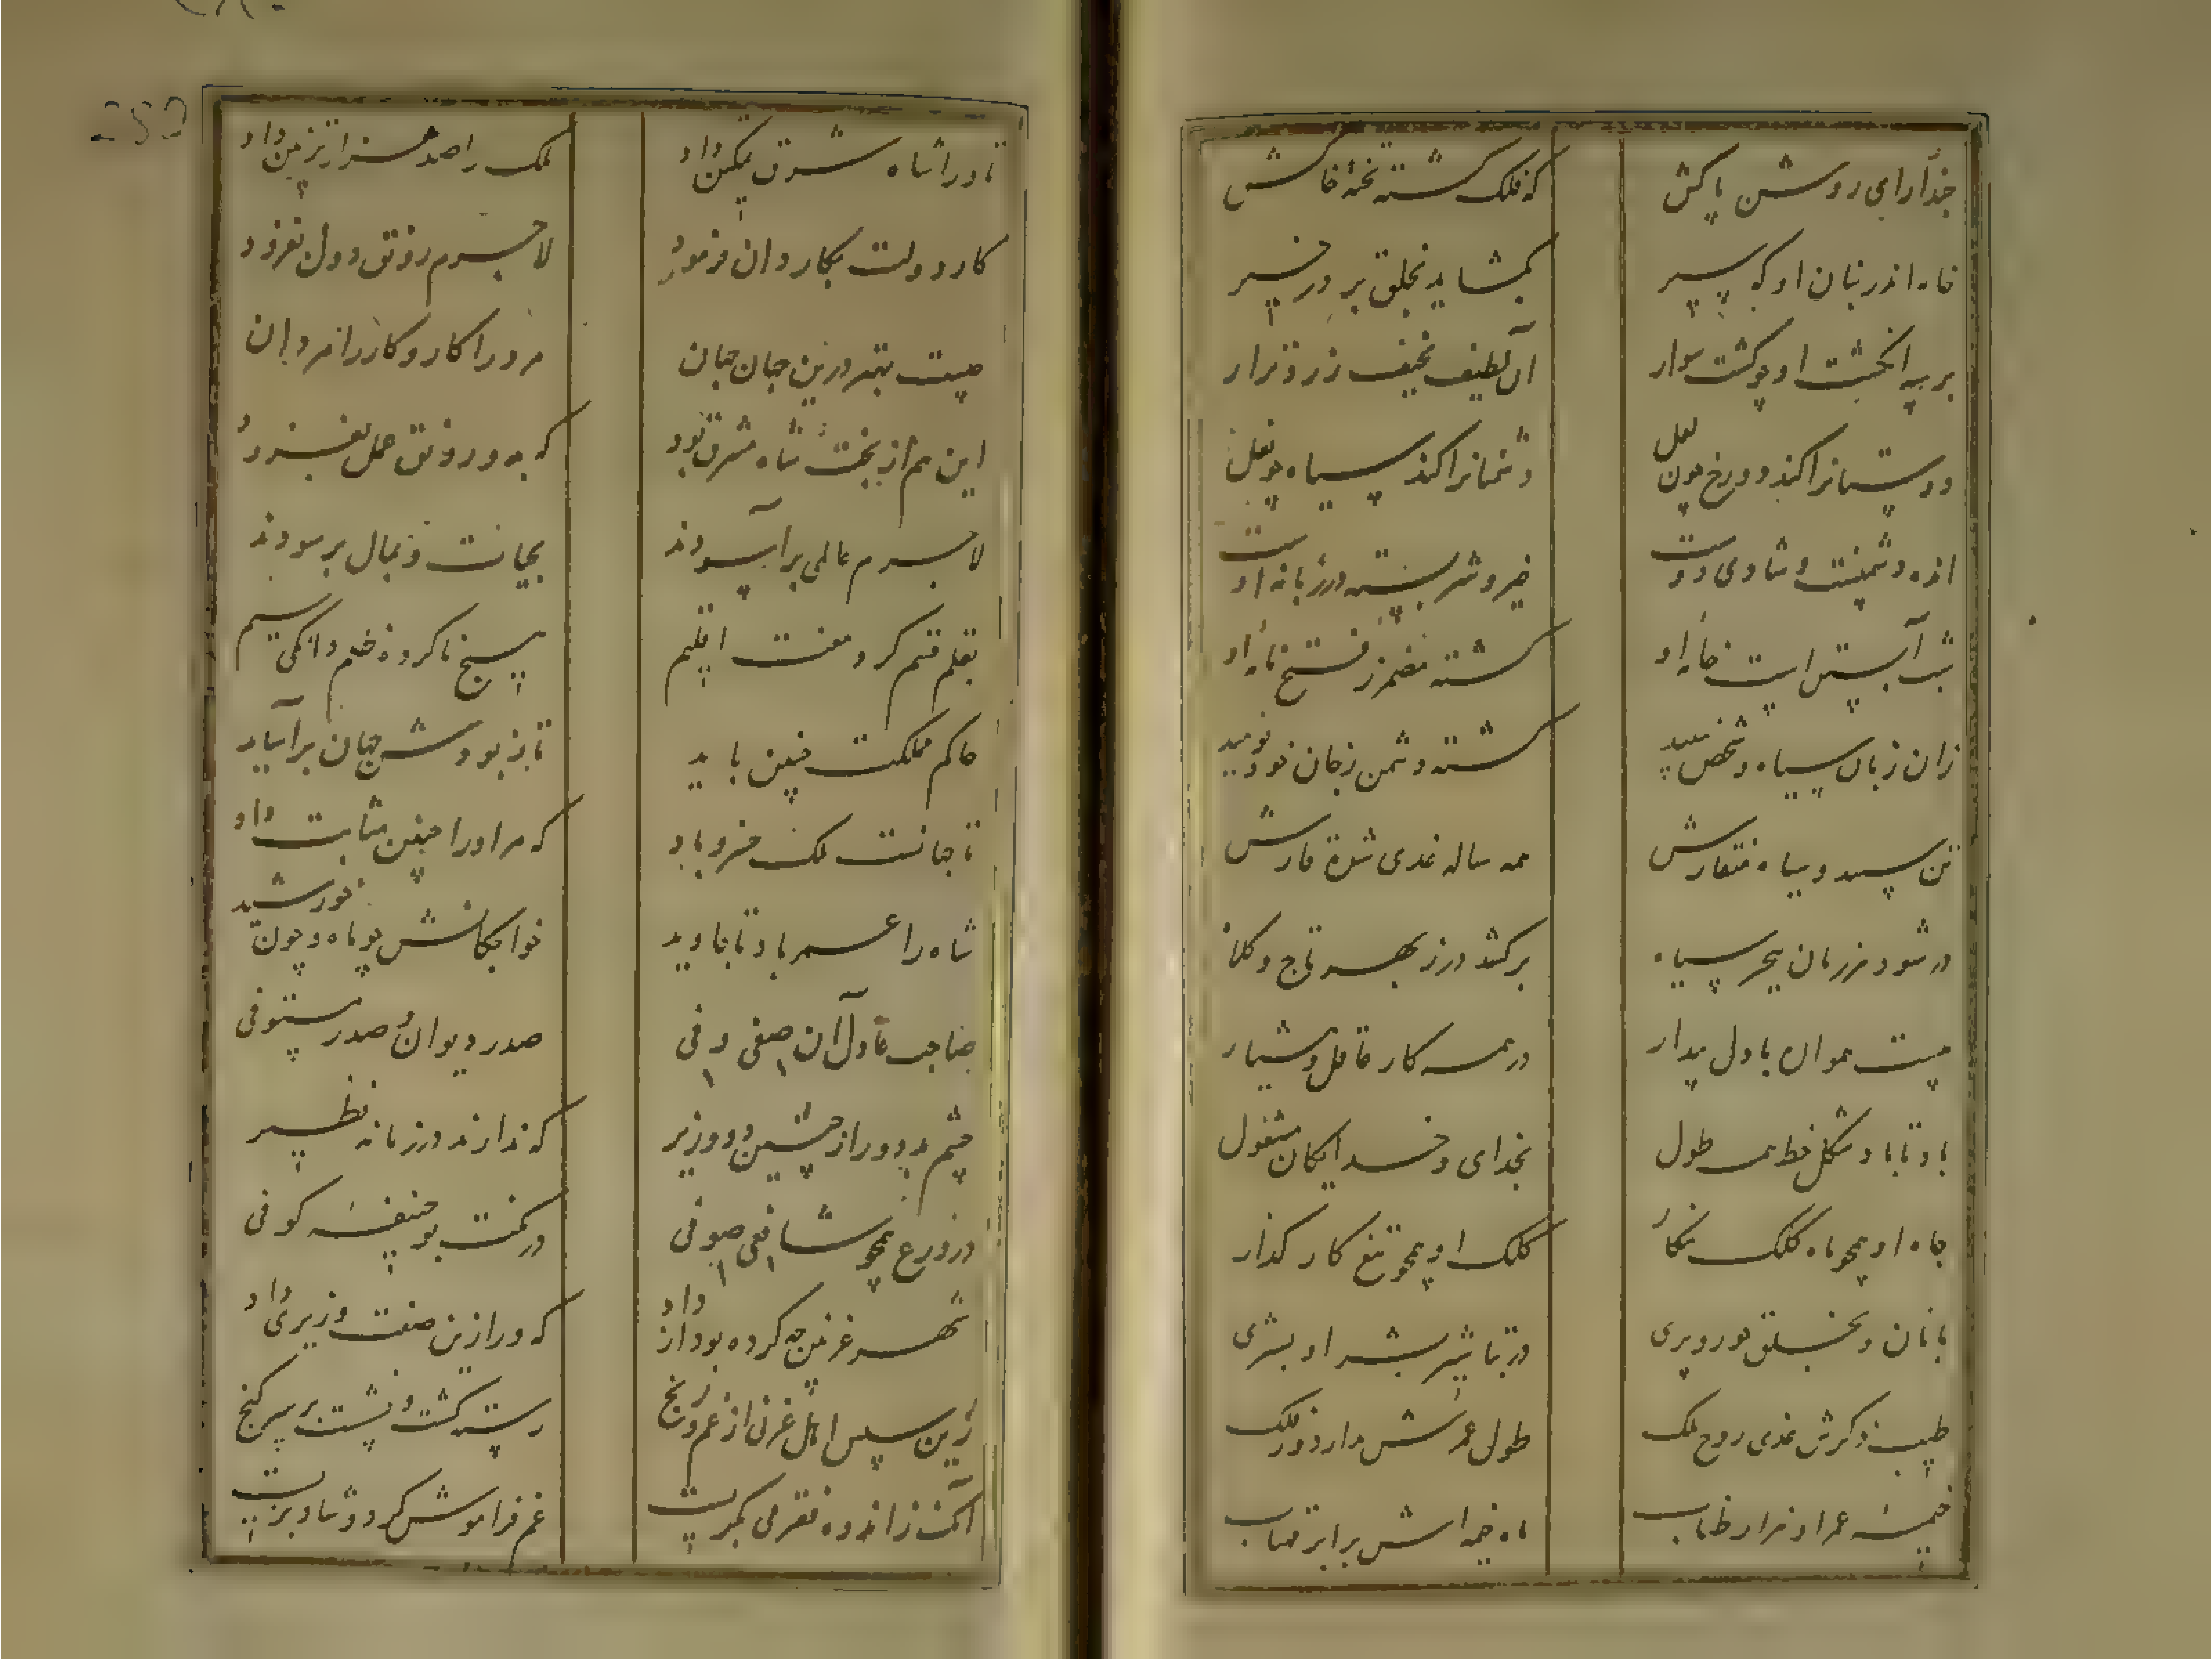 حبذا رای روشن پاکش
که فلک گشته تخته خاکش
خامه اندر بنان او که پیر
بگشاید بخلق بر در خیر
بر سه انگشت او چو گشت سوار
آن لطیف نحیف زرد نزار
دوستانرا کند دو رخ چون لعل
دشمنانرا کند سیاه چو نعل
انده دشمنست و شادی دوست
خیر و شر بسته در زبانه اوست
شب آبستن است خامه او
گشته مضمر ز فتح نامه او
زان زبان سیاه و شخص سپید
گشته دشمن ز جان خود نومید
تن سپید و سیاه منقارش
همه ساله غذی شده قارش
در شود هر زمان ببحر سیاه
برکشد در ز بهر تاج و کلاه
هست هموار با دل بیدار
در همه کار عاقل و هشیار
باد تا باد شکل خط همه طول
بخدای و خدایگان مشغول
جاه او همچو ماه کلک نگار
کلک او همچو تیغ کارگذار
با نان و بخلق حور و پری
در تباشیر بشر او بشری
طیب ذکرش غذی روح ملک
طول عمرش مدار دور فلک
خیمه عمر او هزار طناب
ماه خیمه‌اش برابر مهتاب
تا ورا شاه شرق تمکین داد
ملک را صد هزار تزیین داد
کار دولت بکاردان فرمود
لاجرم رونق دول بفزود
چیست بهتر درین جهان جهان
مرد را کار و کار را مردان
این هم از بخت شاه مشرق بود
که بدو رونق عمل بفزود
لاجرم عالمی برآسودند
بجهانت و بمال بر سودند
بقلم قسم کرد هفت اقلیم
هیچ ناکرده ظلم دانگی سیم
حاکم مملکت چنین باید
تا بدو بودش جهان برآساید
تا جهانست ملک خسرو باد
که مر او را چنین مثابت داد
شاه را عمر باد تا جاوید
خواجگانش چو ماه و چون خورشید
صاحب عادل آن صفی وفی
صدر دیوان و صدر مستوفی
چشم بد دور از چنین دو وزیر
که ندارند در زمانه نظیر
در ورع همچو شافعی صوفی
در نکت بوحنیفه کوفی
شهر غزنین چه کرده بود از داد
که ورا زین صفت وزیری داد
زین سپس اهل غزنی از غم و رنج
رسته گشت و نشست بر سر گنج
آنکه ز اندوه فقر می بگریست
غم فراموش کرد و شاد بزیست